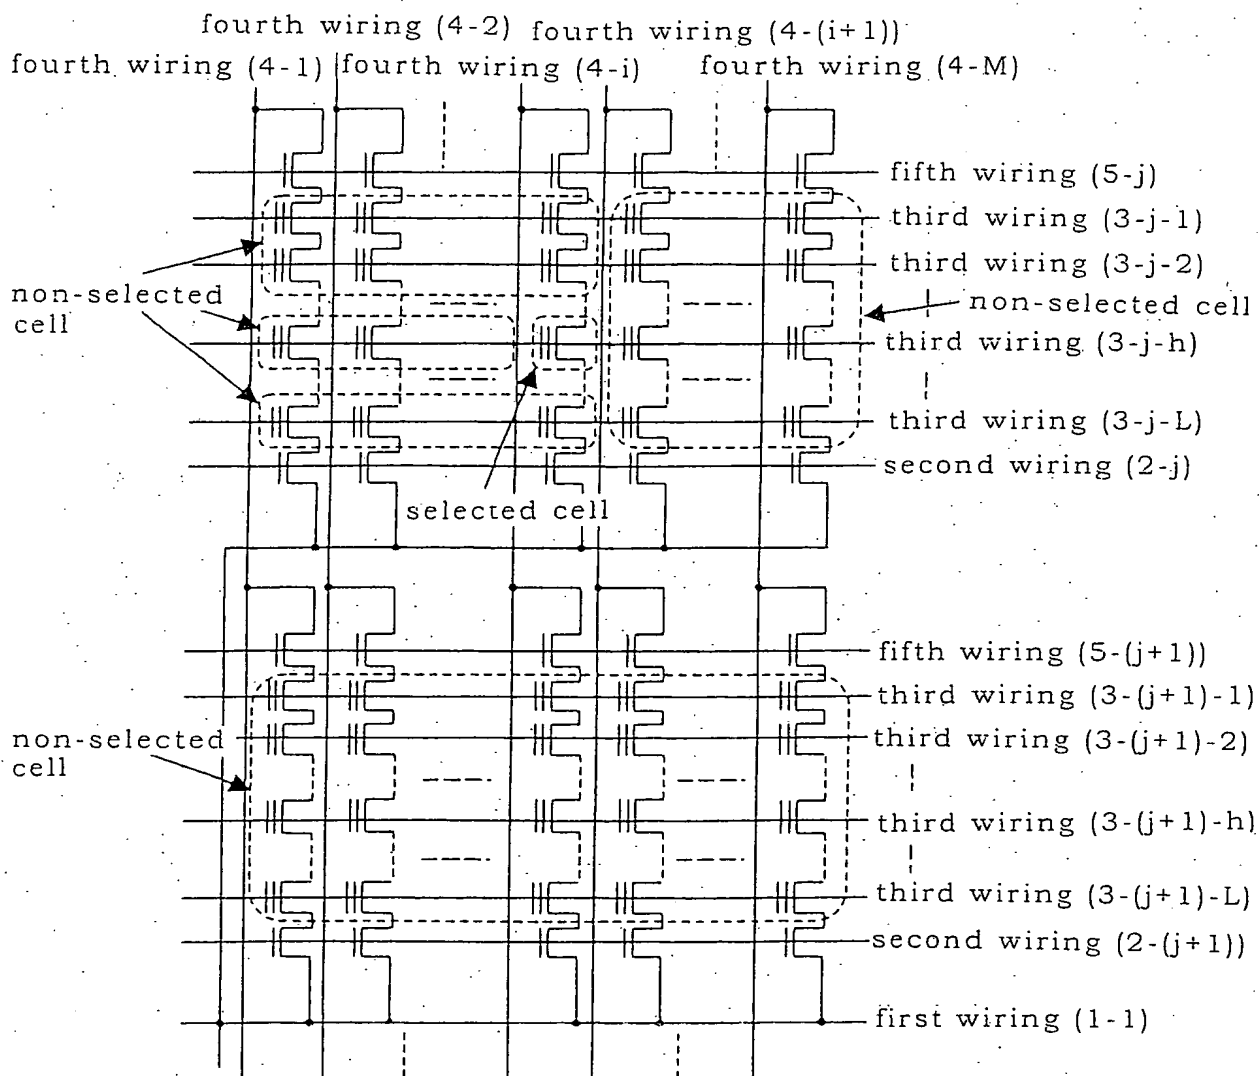 fourth wiring (4-2) fourth wiring (4-(i+1))
fourth wiring (4-1) fourth wiring (4-i) fourth wiring (4-M)
fifth wiring (5-j)
third wiring (3-j-1)
third wiring (3-j-2)
non-selected
cell
non-selected cell
third wiring (3-j-h)
third wiring (3-j-L)
second wiring (2-j)
selected cell
fifth wiring (5-(j+1))
third wiring (3-(j+1)-1)
non-selected
cell
third wiring (3-(j+1)-2)
third wiring (3-(j+1)-h)
third wiring (3-(j+1)-L)
second wiring (2-(j+1))
first wiring (1-1)